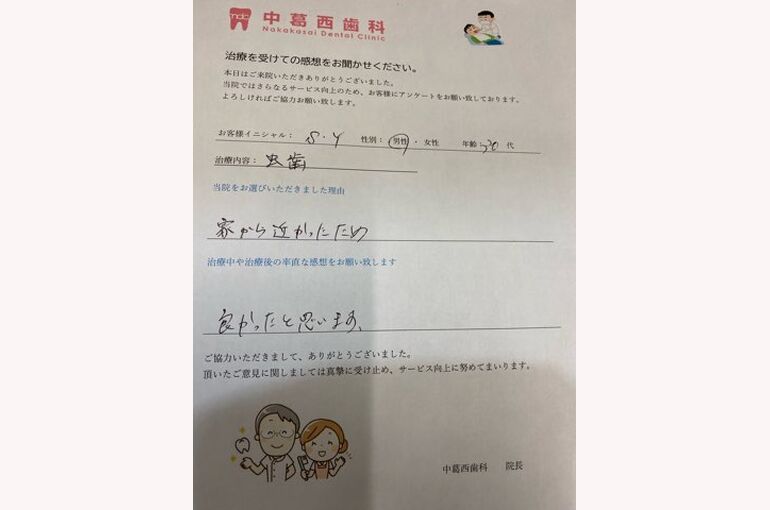 ndc 中葛西歯科
Nakakasai Dental Clinic
治療を受けての感想をお聞かせください。
本日はご来院いただきありがとうございました。
当院ではさらなるサービス向上のため、お客様にアンケートをお願い致しております。
よろしければご協力お願い致します。
お客様イニシャル: S・Y 性別: 男性 ・ 女性 年齢 20 代
治療内容: 虫歯
当院をお選びいただきました理由
家から近かったため
治療中や治療後の率直な感想をお願い致します
良かったと思います。
ご協力いただきまして、ありがとうございました。
頂いたご意見に関しましては真摯に受け止め、サービス向上に努めてまいります。
中葛西歯科 院長